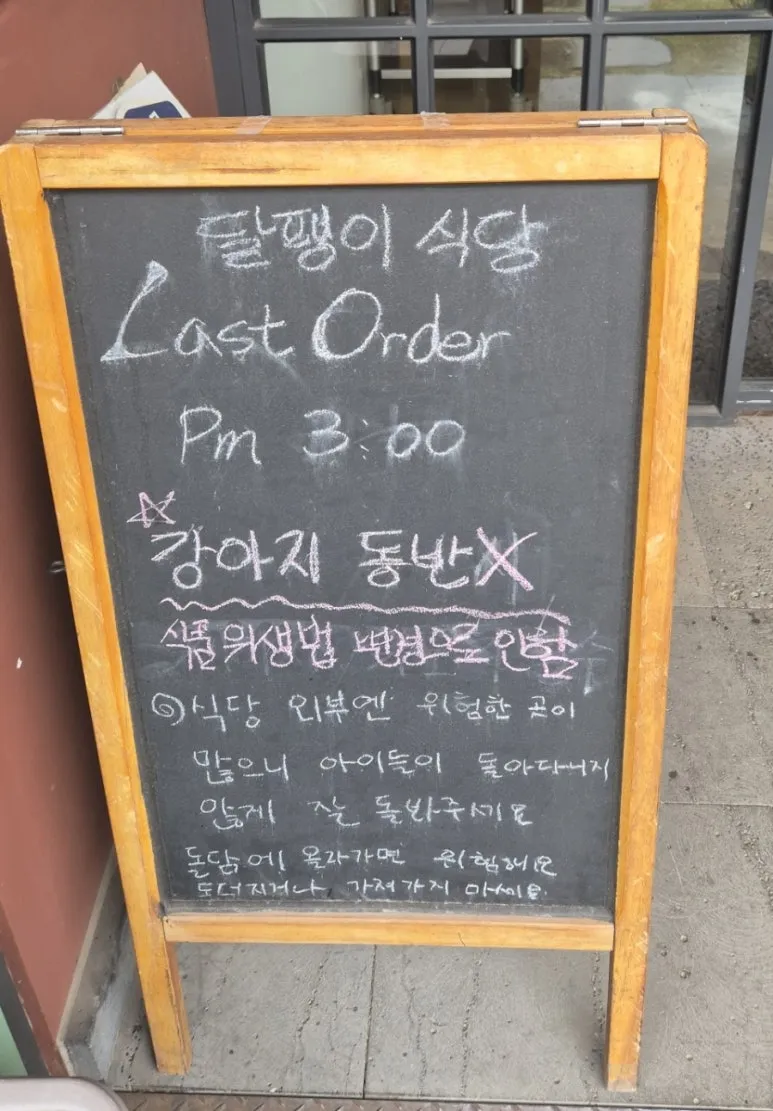 달팽이 식당
Last Order
Pm 3:00
☆
강아지 동반X
식품위생법 변경으로 인함
◎식당 외부엔 위험한 곳이
많으니 아이들이 돌아다니지
않게 잘 돌봐주세요
돌담에 올라가면 위험해요
가져가지 마세요.